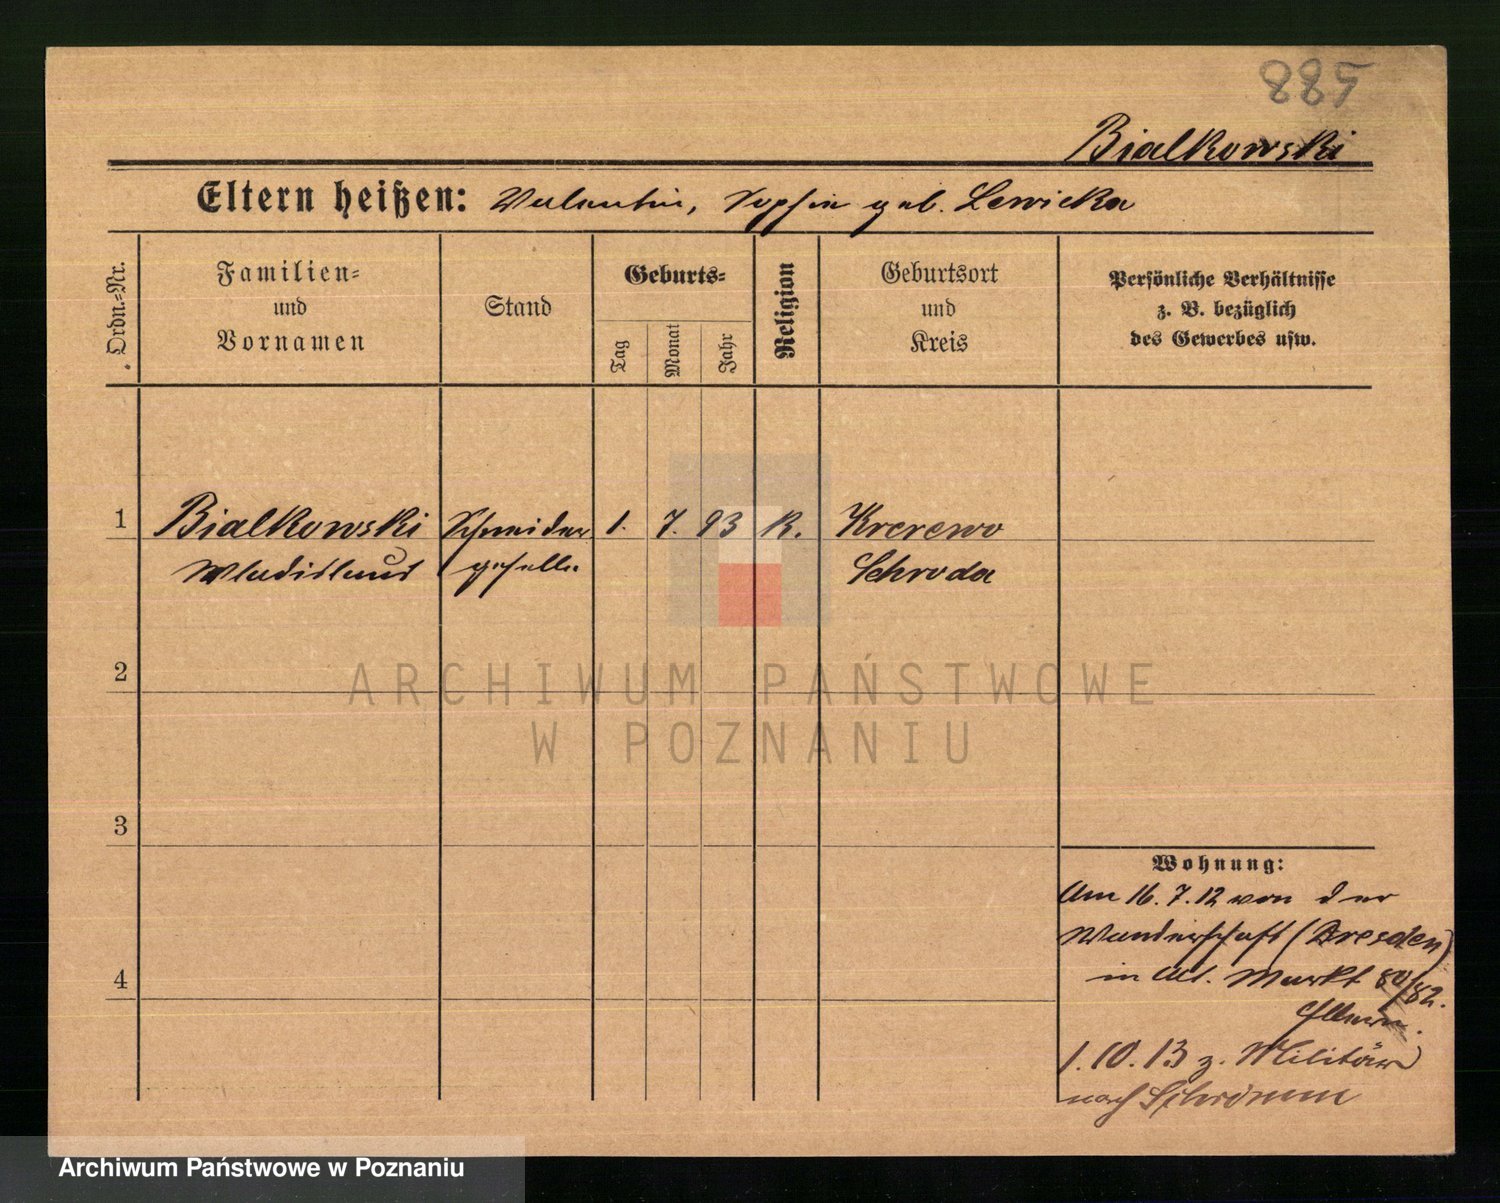 885
Bialkowski
Eltern heißen: Valentin, Sophie geb. Lewicka
Ordn.=Nr.
Familien= und Vornamen
Stand
Geburts=
Tag
Monat
Jahr
Religion
Geburtsort und Kreis
Persönliche Verhältnisse
z. B. bezüglich
des Gewerbes usw.
1 Bialkowski Schneider 1. 7. 93 K. Krerewo
Wladislaus geselle Schroda
2
ARCHIWUM PAŃSTWOWE
W POZNANIU
3
Wohnung:
Am 16.7.12 von der
Wanderschaft (Dresden)
4
in Alt. Markt 80/82.
Eltern.
1.10.13 z. Militär
nach Schrimm
Archiwum Państwowe w Poznaniu